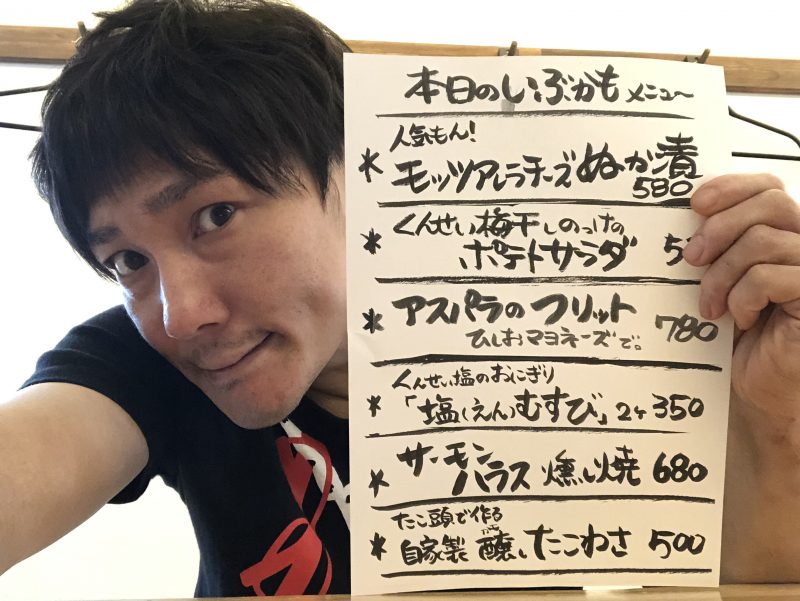 本日のいぶかもメニュー
人気もん!
*モッツアレラチーズぬか漬
580
くんせい梅干しのっけの
*ポテトサラダ 5
*アスパラのフリット
ひしおマヨネーズで。 780
くんせい塩のおにぎり
*「塩(えん)むすび」2ヶ350
*サーモン
ハラス 燻し焼 680
たこ頭で作る
*自家製 醸したこわさ 500